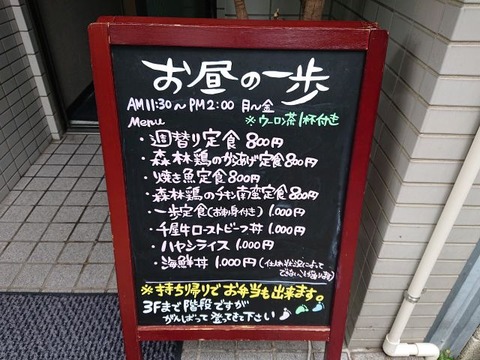 お昼の一歩
AM11:30〜PM2:00 月〜金
※ウーロン茶1杯付き
Menu
・週替り定食 800円
・森林鶏のから揚げ定食 800円
・焼き魚定食 800円
・森林鶏のチキン南蛮定食 800円
・一歩定食(お刺身付き) 1.000円
・千屋牛ローストビーフ丼 1.000円
・ハヤシライス 1.000円
・海鮮丼 1.000円(仕入れ状況によって
できない時あります)
※持ち帰りでお弁当も出来ます。
3Fまで階段ですが
がんばって登ってきて下さい